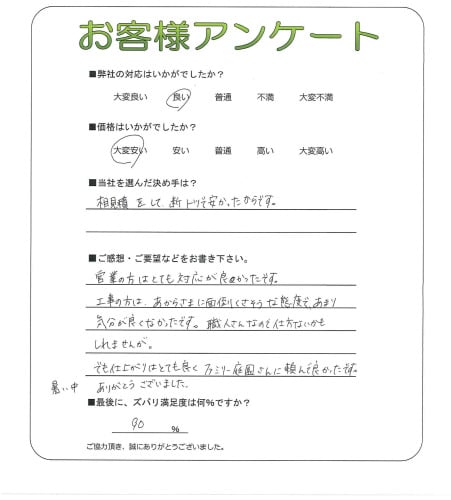 お客様アンケート
■弊社の対応はいかがでしたか?
大変良い 良い 普通 不満 大変不満
■価格はいかがでしたか?
大変安い 安い 普通 高い 大変高い
■当社を選んだ決め手は?
相見積をして、断トツで安かったからです。
■ご感想・ご要望などをお書き下さい。
営業の方はとても対応が良かったです。
工事の方は、あからさまに面倒くさそうな態度で、あまり
気分が良くなかったです。職人さんなので仕方ないかも
しれませんが。
でも仕上がりはとても良くファミリー庭園さんに頼んで良かったです。
暑い中 ありがとうございました。
■最後に、ズバリ満足度は何%ですか?
90 %
ご協力頂き、誠にありがとうございました。